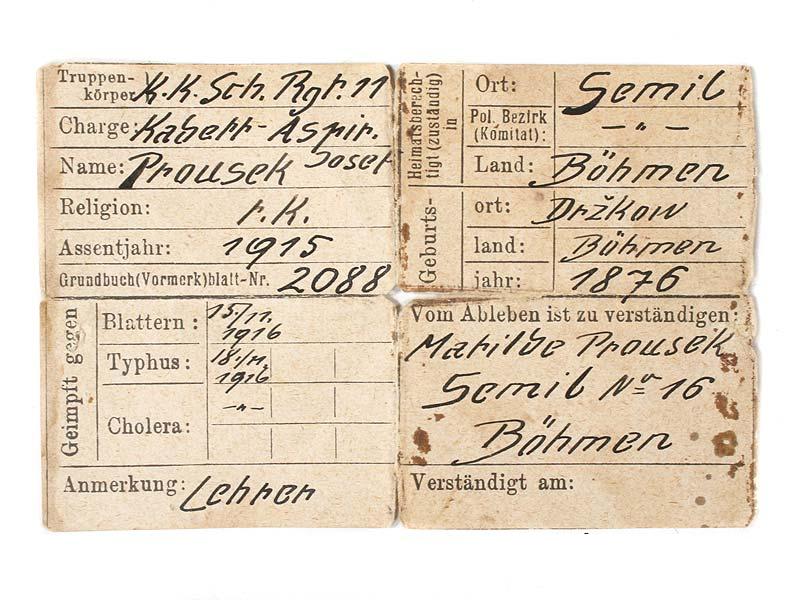 Truppen-
körper K.K. Sch. Rgt. 11
Charge: Kadett-Aspir.
Name: Prousek Josef
Religion: r. K.
Assentjahr: 1915
Grundbuch(Vormerk)blatt-Nr. 2088
Heimatsberech-
tigt (zuständig)
in
Ort: Semil
Pol. Bezirk
(Komitat): — " —
Land: Böhmen
Geburts-
ort: Držkow
land: Böhmen
jahr: 1876
Geimpft gegen
Blattern: 15/11.
1916
Typhus: 18./11.
1916
Cholera: — " —
Anmerkung: Lehrer
Vom Ableben ist zu verständigen:
Matilde Prousek
Semil No 16
Böhmen
Verständigt am: